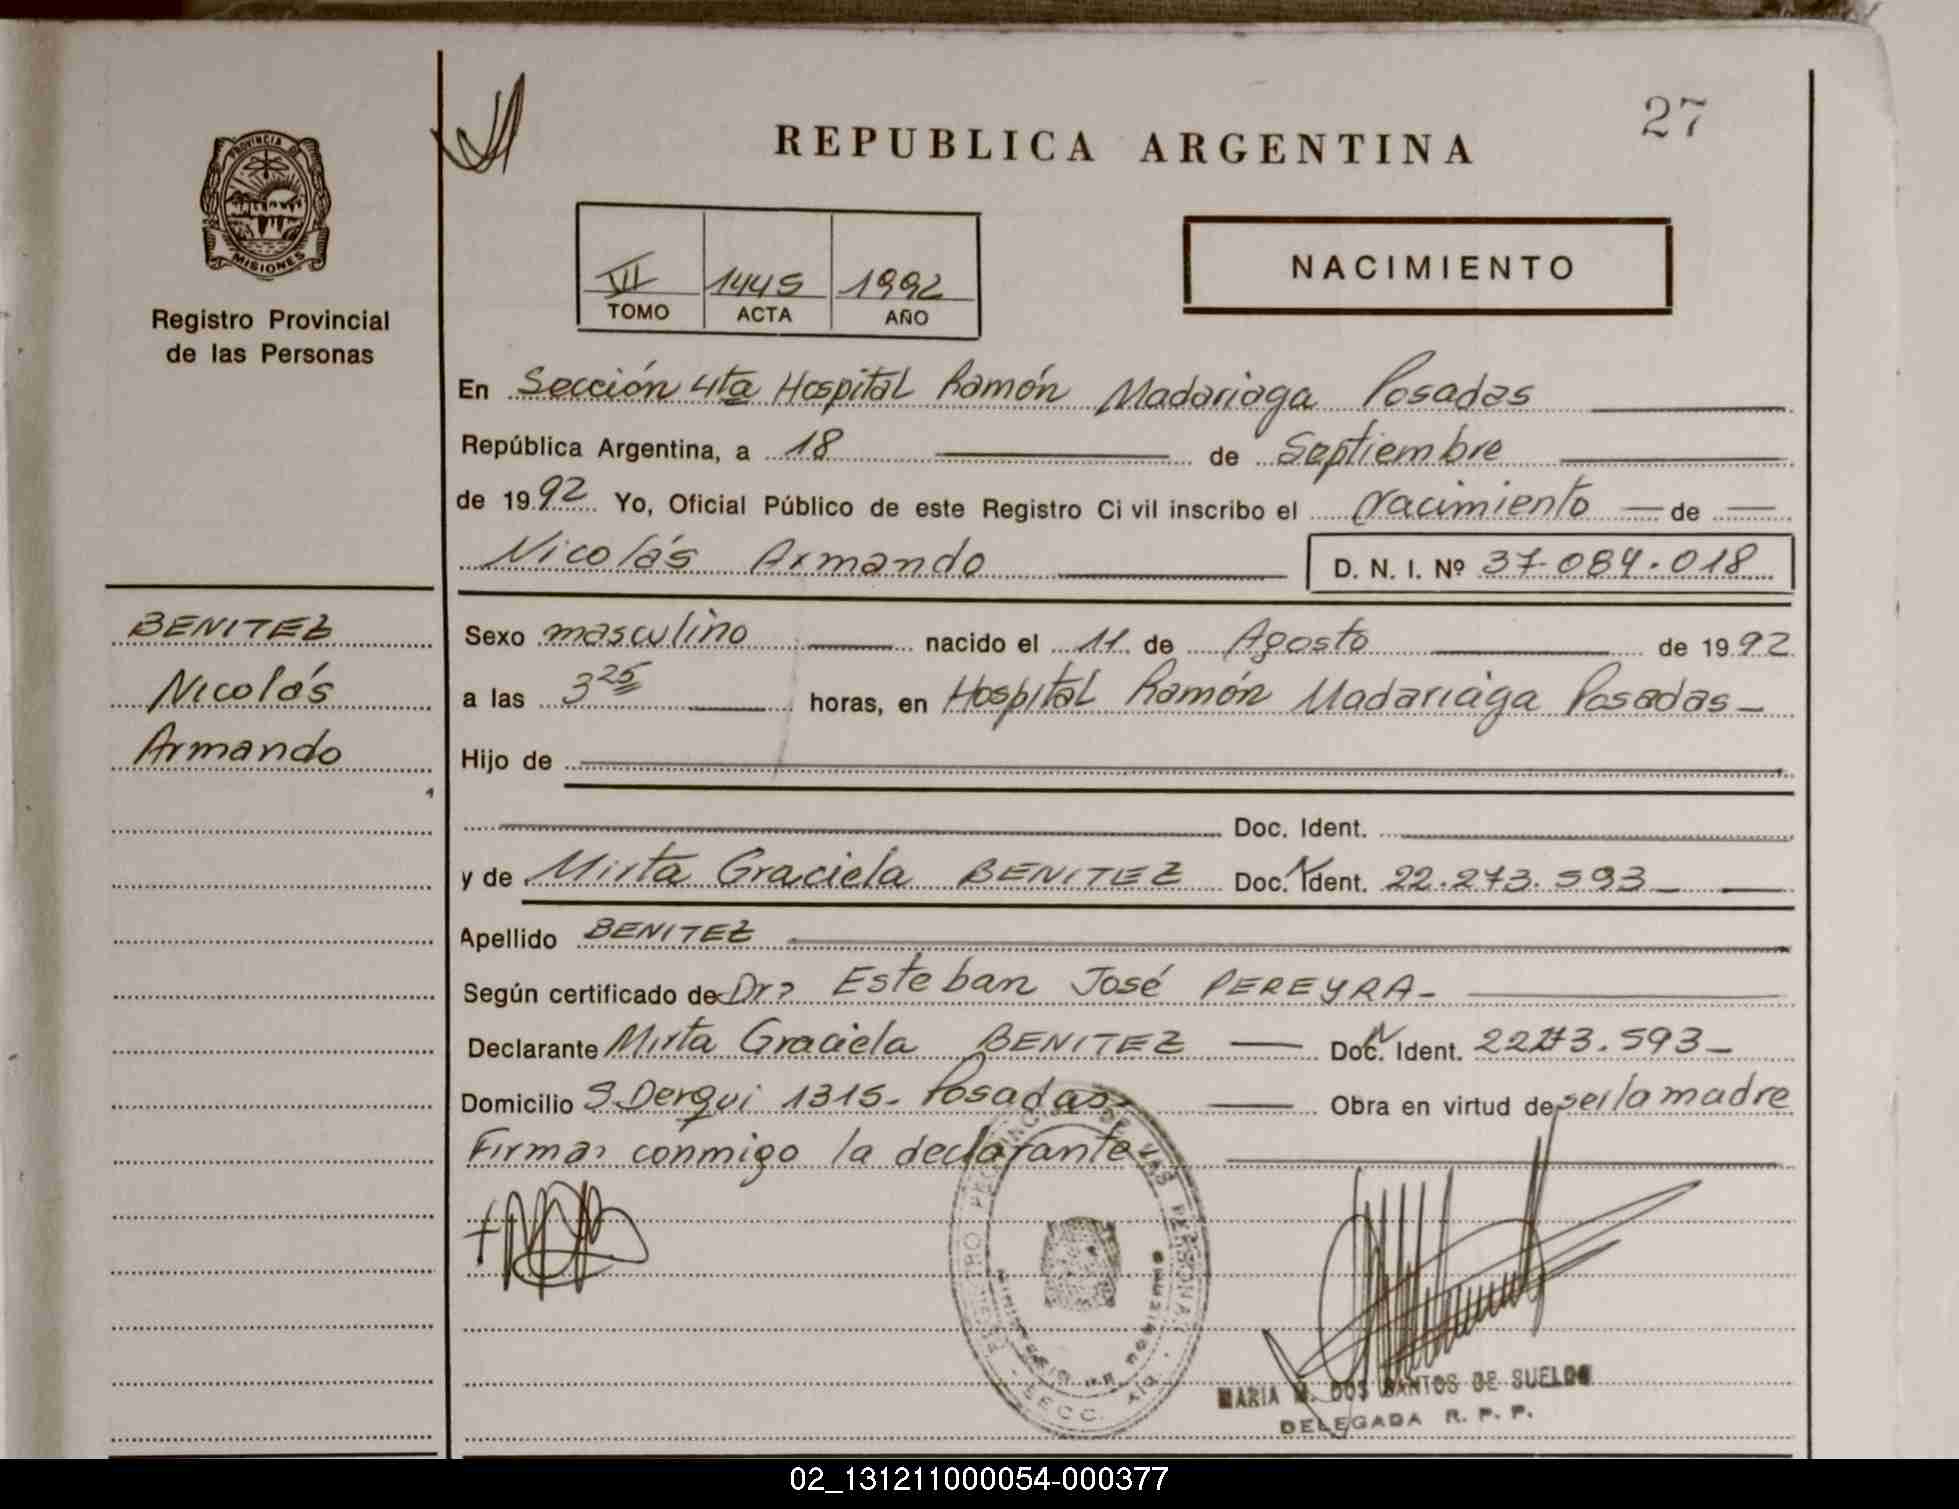 27
REPUBLICA ARGENTINA
PROVINCIA DE
MISIONES
Registro Provincial
de las Personas
VII 1445 1992
TOMO ACTA AÑO
NACIMIENTO
En Sección 4ta Hospital Ramón Madariaga Posadas
República Argentina, a 18 de Septiembre
de 1992 Yo, Oficial Público de este Registro Civil inscribo el Nacimiento de
Nicolás Armando D. N. I. Nº 37.084.018
BENITEZ
Nicolás
Armando
Sexo masculino nacido el 11 de Agosto de 1992
a las 3 25 horas, en Hospital Ramón Madariaga Posadas
Hijo de
Doc. Ident.
y de Mirta Graciela BENITEZ Doc. Ident. 22.273.593
Apellido BENITEZ
Según certificado de Dr. Esteban José PEREYRA
Declarante Mirta Graciela BENITEZ Doc. Ident. 22273.593
Domicilio S. Derqui 1315 - Posadas Obra en virtud de ser la madre
Firma conmigo la declarante
REGISTRO PROVINCIAL DE LAS PERSONAS
MARIA DOS SANTOS DE SUELDO
DELEGADA R. P. P.
02_131211000054-000377